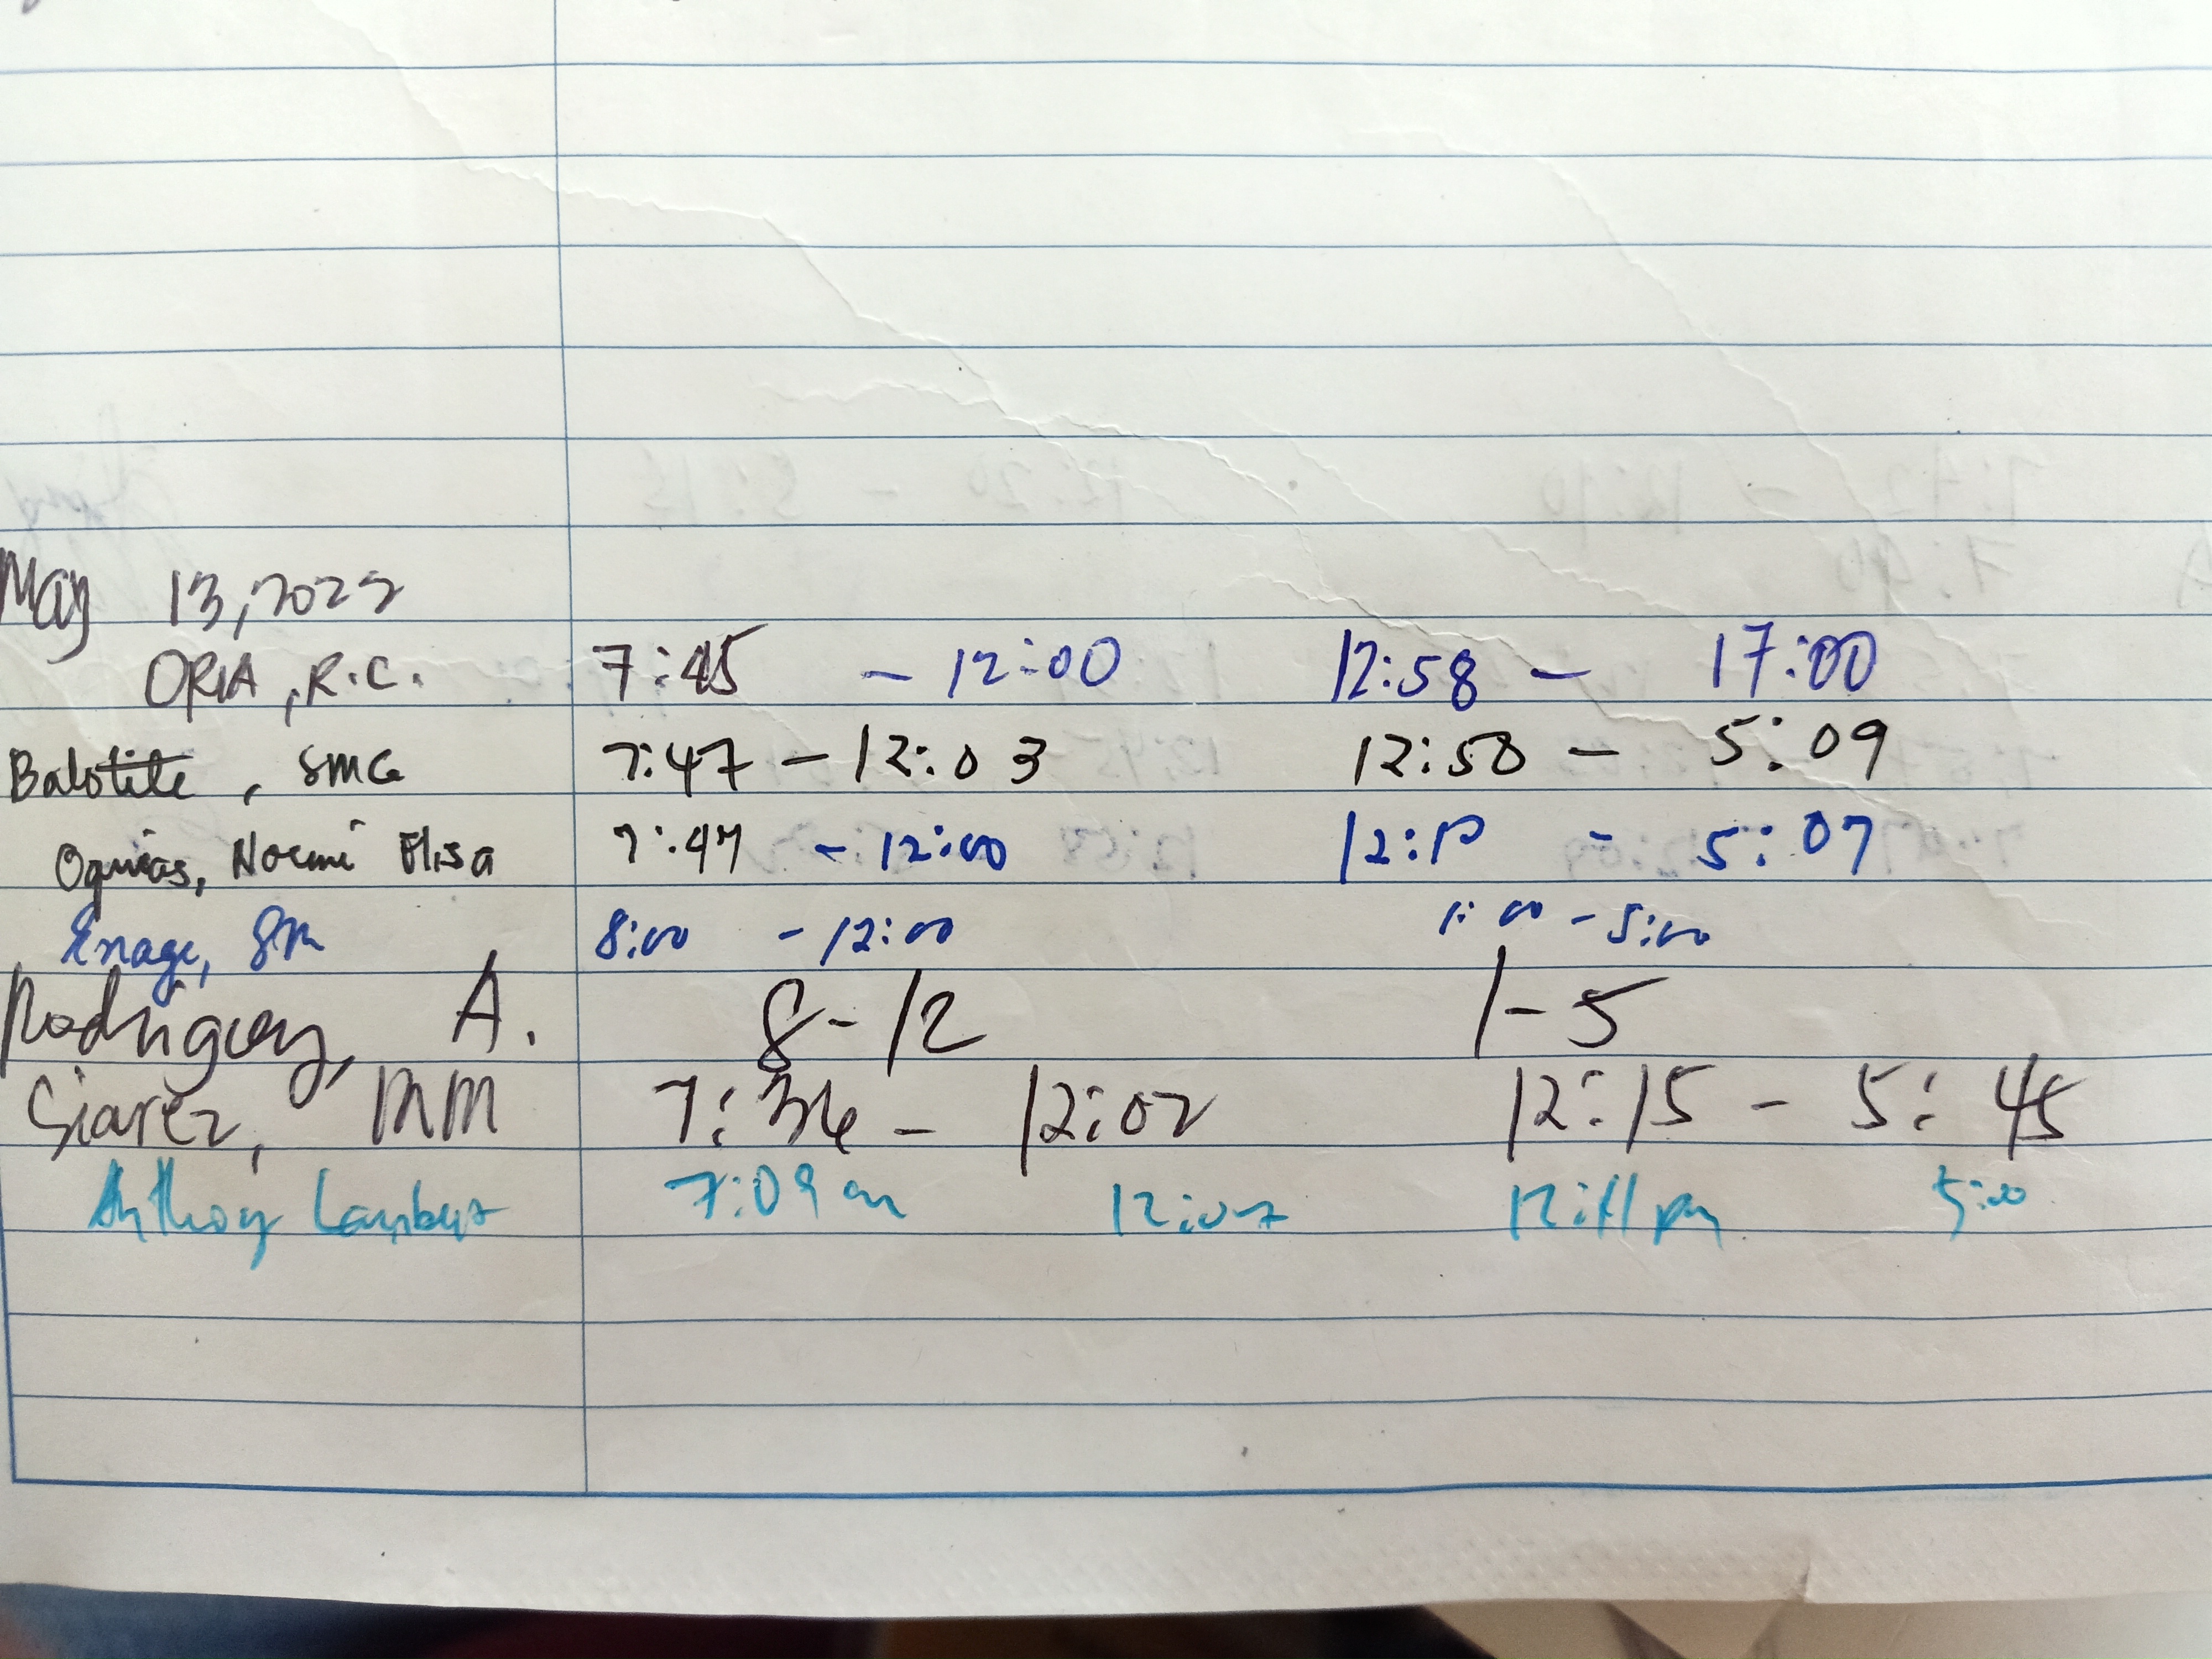 May 13, 2022
ORIA, R.C. 7:45 - 12:00 12:58 - 17:00
Balotite, SMG 7:47 - 12:03 12:58 - 5:09
Oquias, Noemi Elisa 7:47 - 12:00 12:10 - 5:07
Enage, SM 8:00 - 12:00 1:00 - 5:00
Rodriguez, A. 8-12 1-5
Siarez, MM 7:36 - 12:02 12:15 - 5:45
Anthony 7:09 am 12:07 12:11 pm 5:00